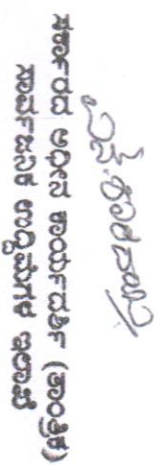 ಸರ್ಕಾರದ ಅಧೀನ ಕಾರ್ಯದರ್ಶಿ (ತಾಂತ್ರಿಕ)
ಸಾರ್ವಜನಿಕ ಉದ್ದಿಮೆಗಳ ಇಲಾಖೆ